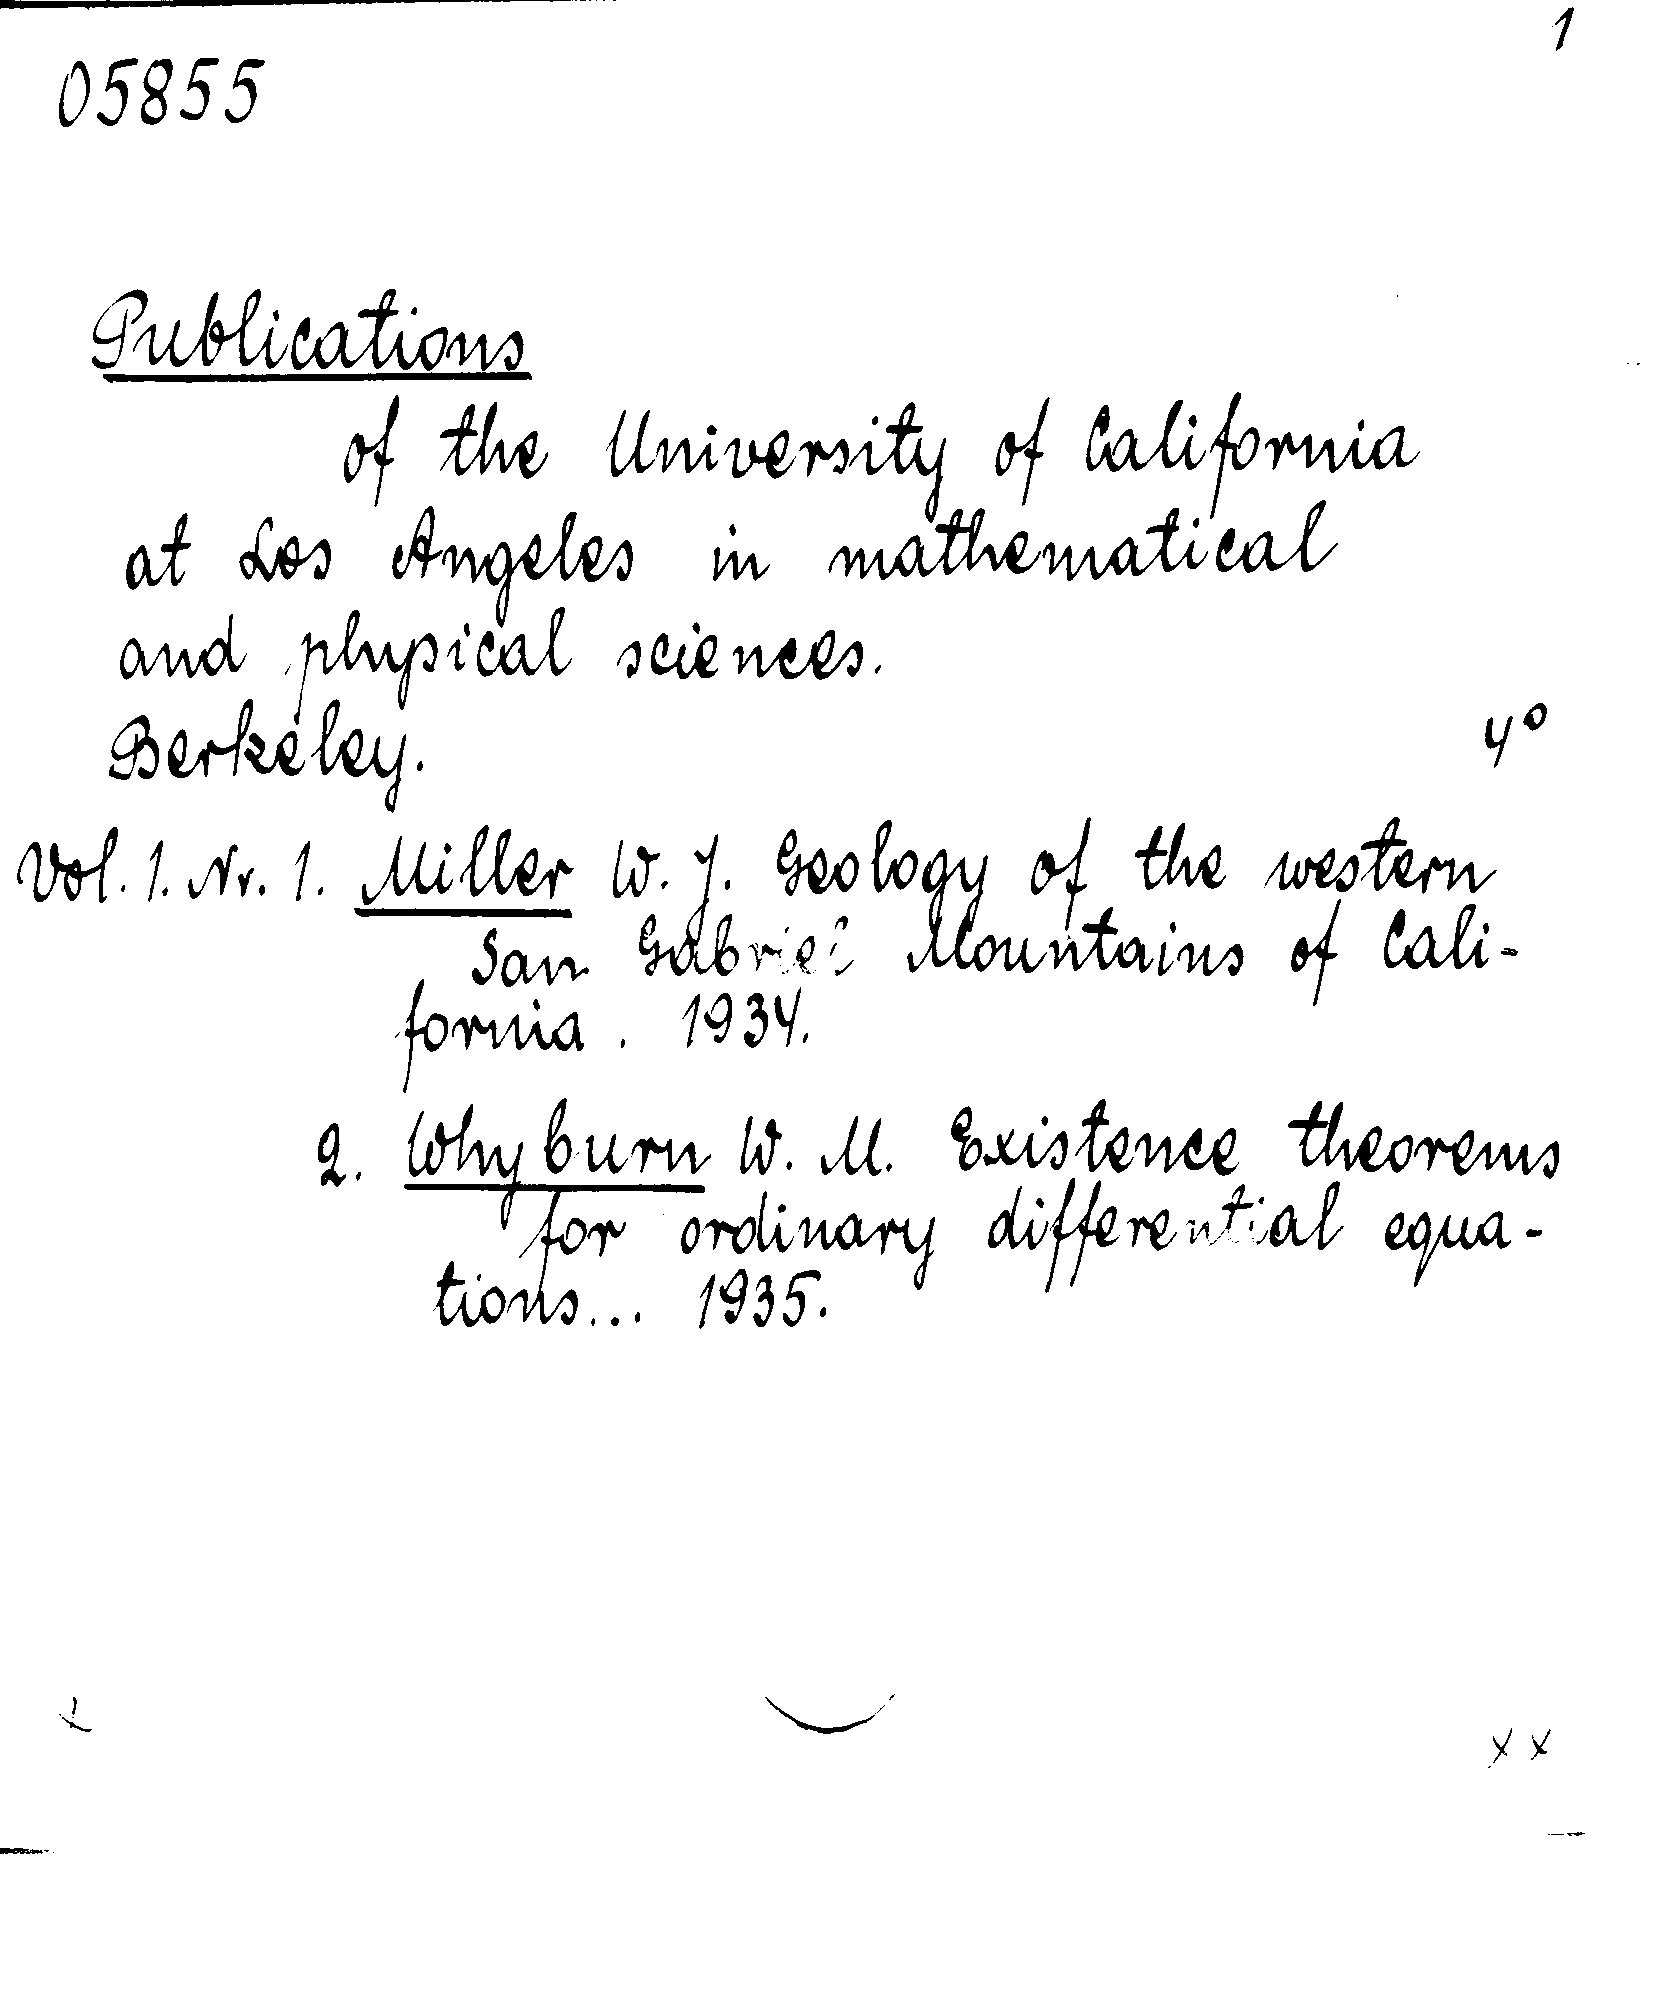 1
05855
Publications
of the University of California
at Los Angeles in mathematical
and physical sciences.
Berkeley. 4°
Vol. 1. Nr. 1. Miller W. J. Geology of the western
San Gabriel Mountains of Cali-
fornia. 1934.
2. Whyburn W. M. Existence theorems
for ordinary differential equa-
tions... 1935.
x x